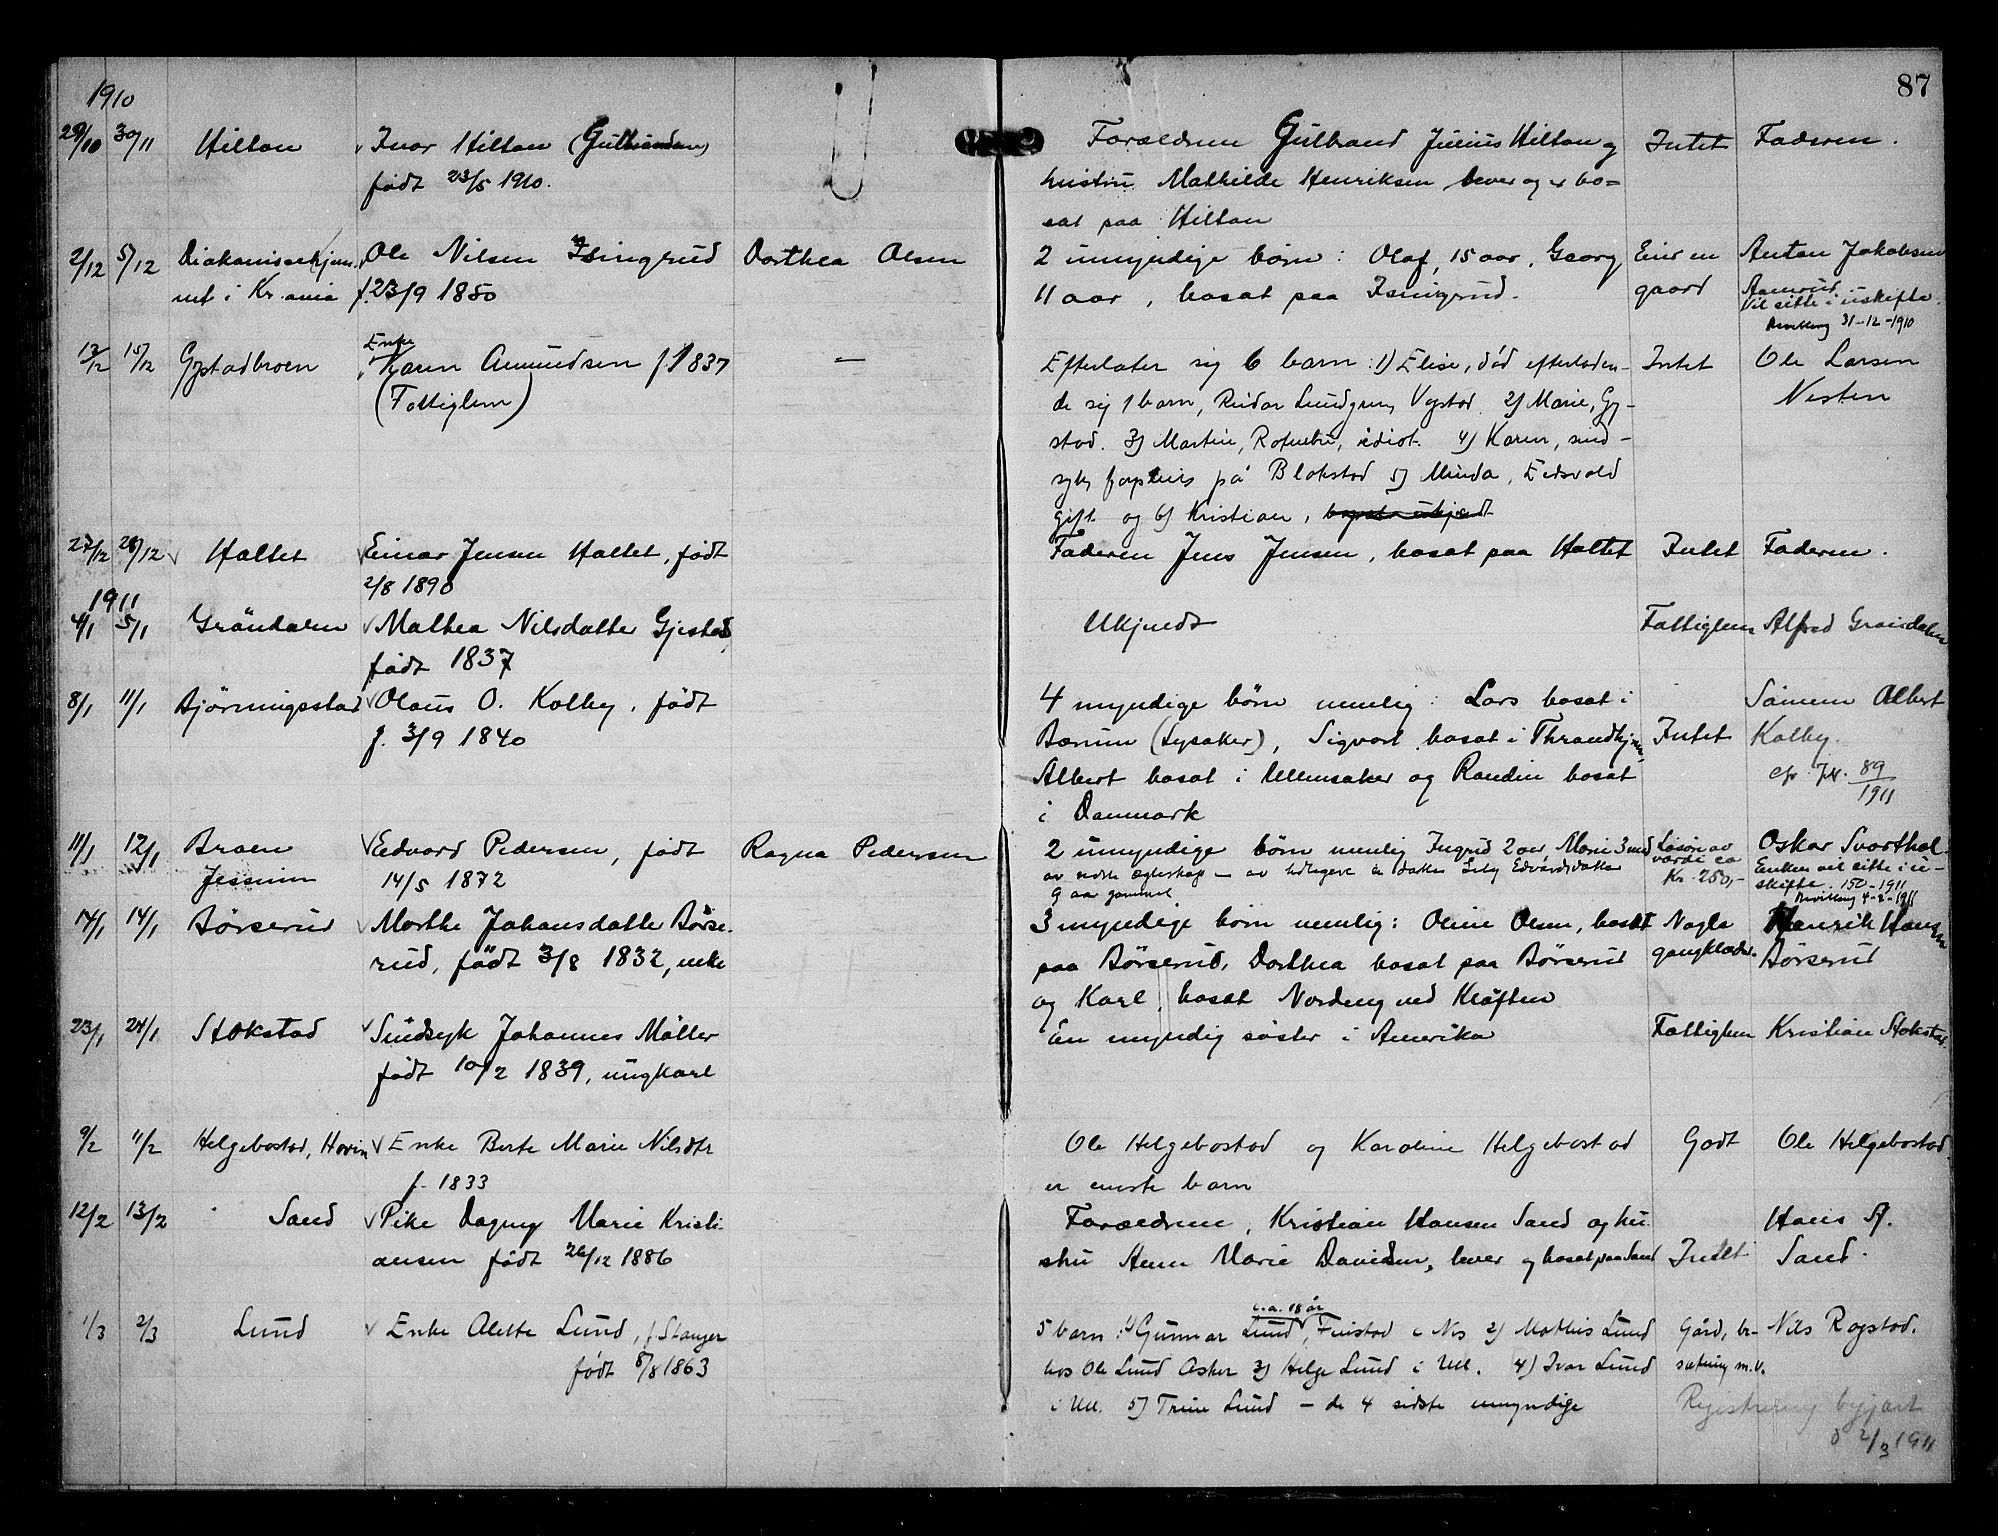 87
1910
29/10 30/11 Hilton Ivar Hilton (Gulbrandsen) Forældrene Gulbrand Julius Hilton og Intet Faderen.
født 23/5 1910. hustru Mathilde Henriksen lever og er bo=
sat paa Hilton
2/12 5/12 Diakonissehjem- Ole Nilsen Isingrud Dorthea Olsen 2 umyndige børn: Olaf, 15 aar, Georg Eier en Anton Jakobsen
met i Kr.ania f. 23/9 1850 11 aar, bosat paa Isingrud. gaard Aamrud
Vil sitte i uskifte.
Bevilling 31-12-1910
Enke
13/12 15/12 Gystadbroen Karen Amundsen f. 1837 — Efterlater sig 6 barn: 1) Elise, død efterladen- Intet Ole Larsen
(Fattiglem) de sig 1 barn, Reidar Lundgren, Vogstad 2) Marie, Gy- Nesten
stad. 3) Martin, idiot. 4) Karen, sind-
syk, på Blokstad 5) Minda, Eidsvold
gift og 6) Kristian,
27/12 28/12 Holtet Einar Jensen Holtet, født Faderen Jens Jensen, bosat paa Holtet Intet Faderen.
2/8 1890
1911
4/1 5/1 Gröndalen Mathea Nilsdatter Gjestad, Ukjendt Fattiglem Alfred Gröndalen
født 1837
8/1 11/1 Bjørningsstad Olaus O. Kolby, født 4 myndige børn nemlig: Lars bosat i Sønnen Albert
f. 3/9 1840 Bærum (Lysaker), Sigvart bosat i Throndhjem, Intet Kolby.
Albert bosat i Ullensaker og Randin bosat cfr. J.N. 89/1911
i Danmark
11/1 12/1 Braaten Edvard Pedersen, født Ragna Pedersen 2 umyndige børn nemlig Ingrid 2 aar Marie 3 mnd Løsøre av Oskar Svarthol.
Jessheim 14/5 1872 av sidste ægteskap — av tidligere en datter Lily Edvardsdatter værdi ca Enken vil sitte i u-
9 aar gammel Kr. 250,- skifte. 150-1911
Bevilling 4-2-1911
14/1 14/1 Børserud Marthe Johansdatter Børse- 3 myndige børn nemlig: Oline Olsen, bosat Nogle Henrik Hansen
rud, født 3/8 1832, enke paa Børserud, Dorthea bosat paa Børserud gangklæder. Børserud
og Karl, bosat Nordeng ved Kløften
23/1 24/1 Stokstad Sindsyk Johannes Möller En myndig søster i Amerika Fattiglem Kristian Stokstad.
født 10/2 1839, ungkarl
9/2 11/2 Helgebostad, Hovin Enke Berte Marie Nilsdtr Ole Helgebostad og Karoline Helgebostad Godt Ole Helgebostad.
f. 1833 er eneste barn
12/2 13/2 Sand Pike Dagny Marie Kristi- Forældrene, Kristian Hansen Sand og hu- Hans A.
ansen født 26/12 1886 stru Anne Marie Davidsen, lever og bosat paa Sand Intet Sand.
c.a. 18 år
1/3 2/3 Lund Enke Alette Lund, f. Stanger 5 barn: 1) Gunnar Lund, Finstad i Nes 2) Mathis Lund Gård, be- Nils Rogstad.
født 8/8 1863 hos Ole Lund Asker 3) Helge Lund i Ull. 4) Ivar Lund sætning m.v.
i Ull. 5) Trine Lund — de 4 sidste umyndige Registrering begjært
d 2/3 1911